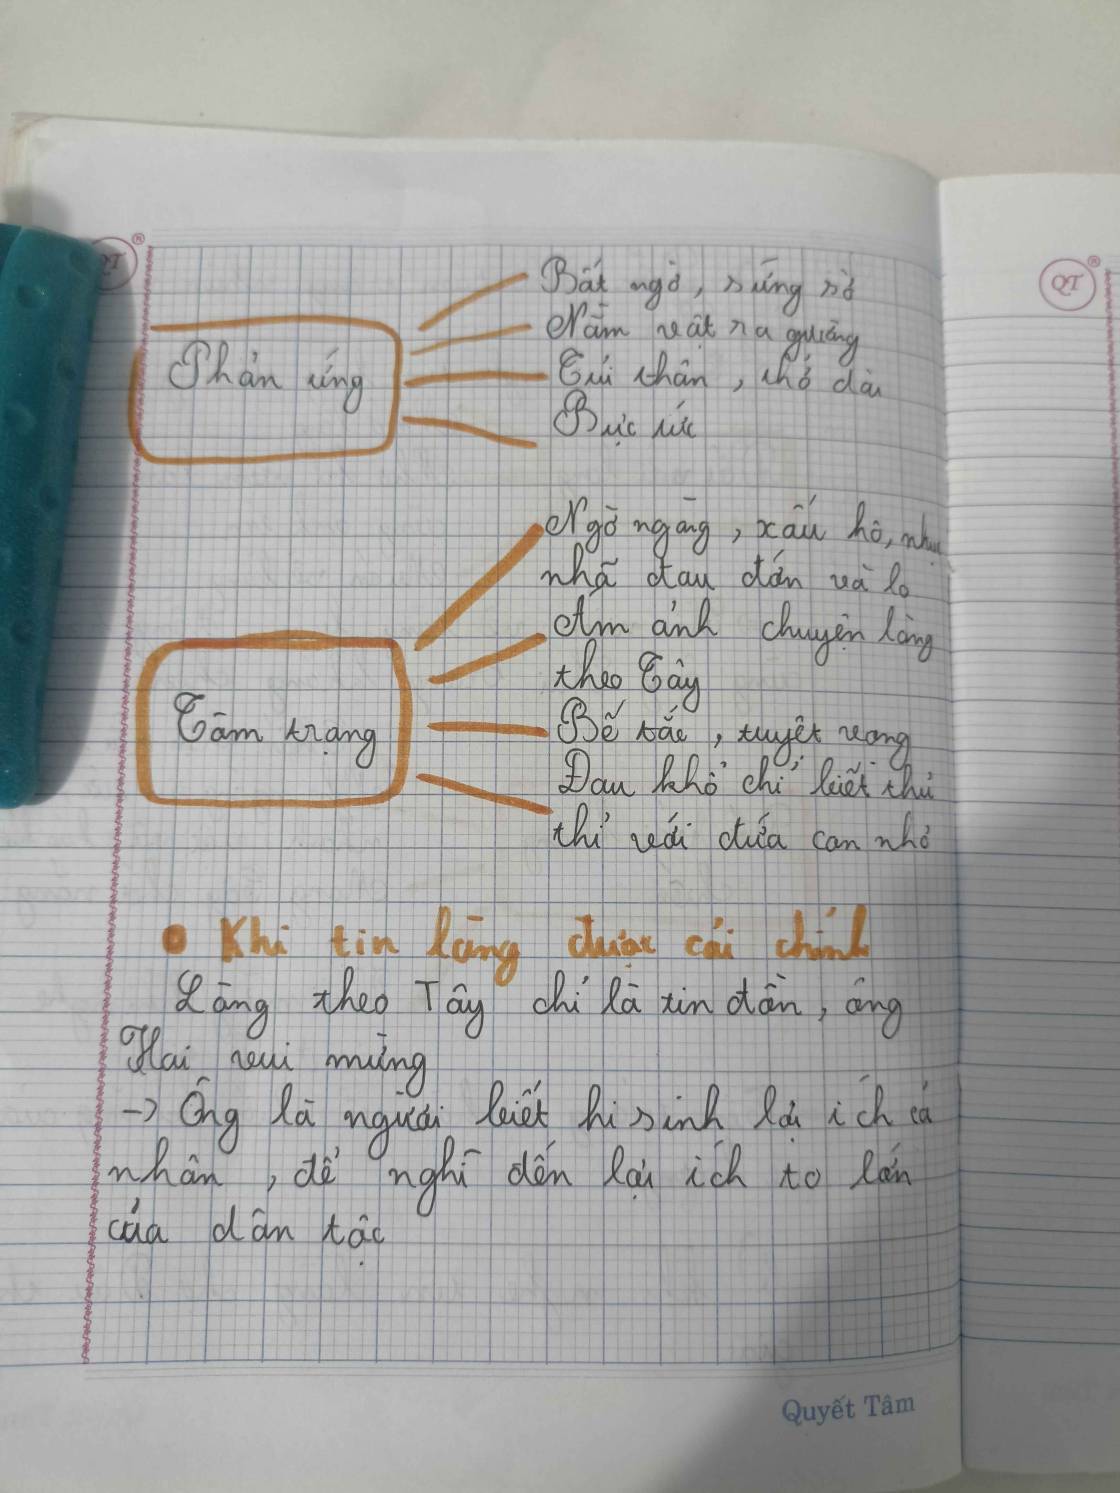 QT
®
QT
®
Bất ngờ, sững sờ
Phản ứng
Nằm vật ra giường
Tủi thân, thở dài
Bực tức
Ngỡ ngàng, xấu hổ, nhục
nhã đau đớn và lo
Ám ảnh chuyện làng
theo Tây
Tâm trạng
Bế tắc, tuyệt vọng
Đau khổ chỉ biết thủ
thỉ với đứa con nhỏ
• Khi tin làng được cải chính
Làng theo Tây chỉ là tin đồn, ông
Hai vui mừng
-> Ông là người biết hi sinh lợi ích cá
nhân, để nghĩ đến lợi ích to lớn
của dân tộc
Quyết Tâm